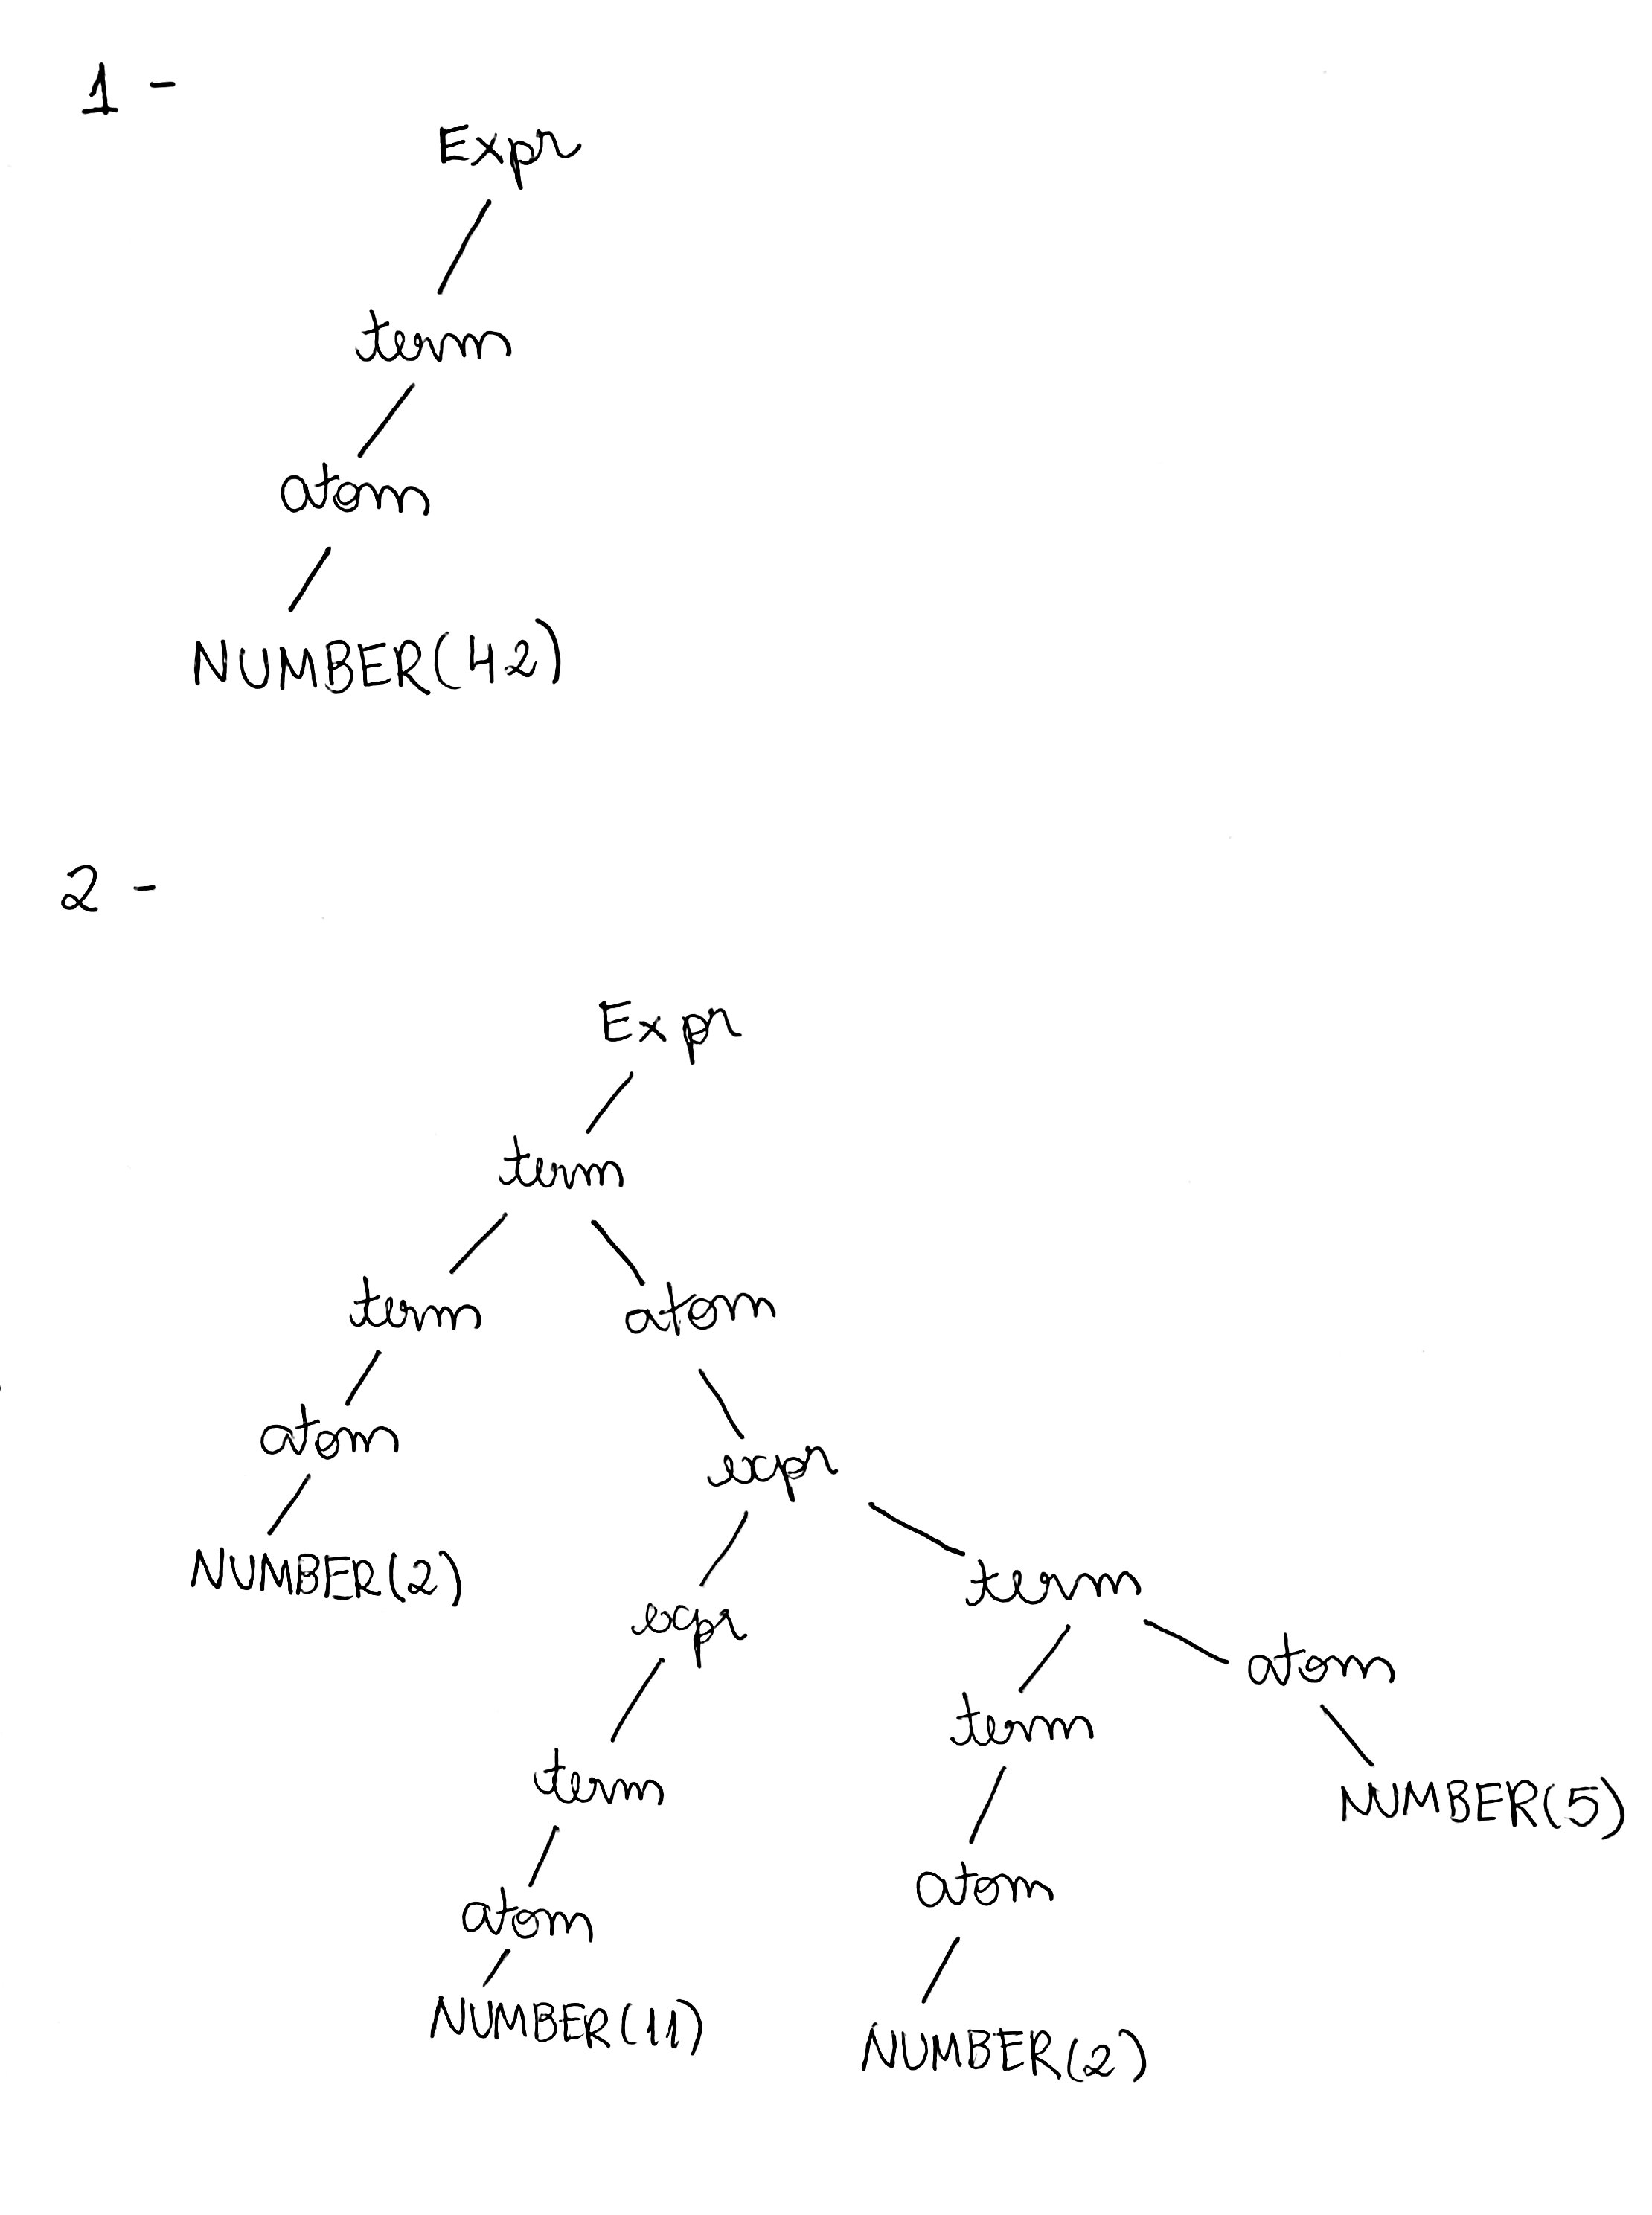 1 -
Expr
term
atom
NUMBER(42)
2 -
Expr
term
term atom
atom expr
NUMBER(2) expr term
term term atom
atom atom NUMBER(5)
NUMBER(11) NUMBER(2)